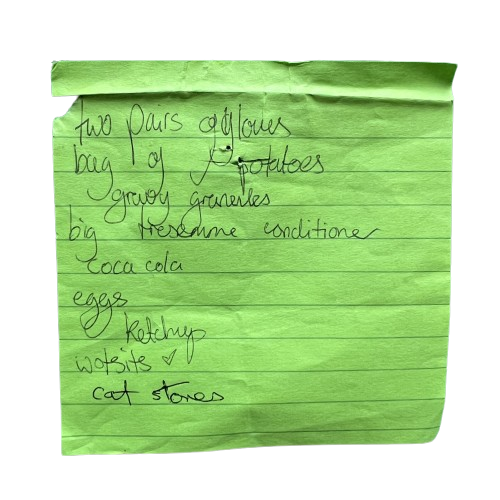 two pairs of gloves
bag of potatoes
gravy granules
big tresemme conditioner
coca cola
eggs
ketchup
wotsits ✓
cat stones